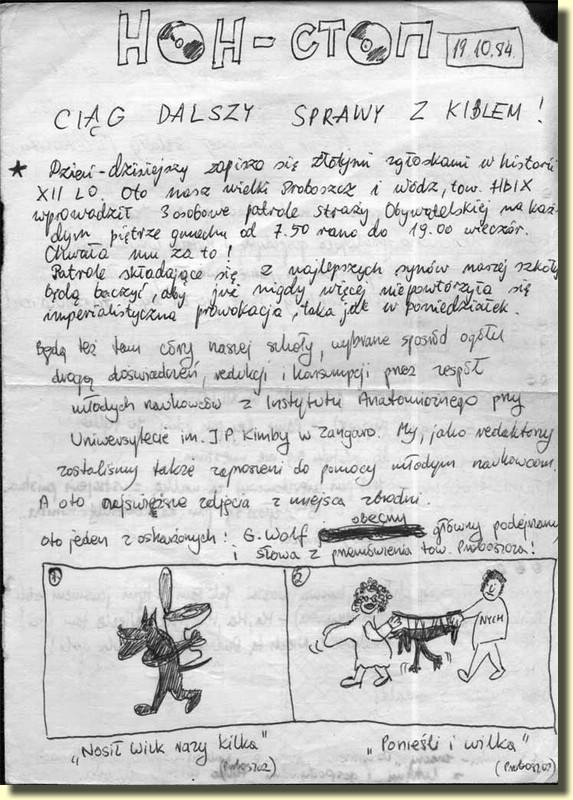 НОН-СТОП
19.10.84.
CIĄG DALSZY SPRAWY Z KIBLEM!
Dzień dzisiejszy zapisze się złotymi zgłoskami w historii
XII LO Oto nasz wielki Proboszcz i wódz, tow. HBIX
wprowadził 3 osobowe patrole straży Obywatelskiej na każ-
dym piętrze gmachu od 7.50 rano do 19.00 wieczór.
Chwała mu za to!
Patrole składające się z najlepszych synów naszej szkoły
będą baczyć aby już nigdy więcej niepowtórzyła się
imperialistyczna prowokacja, taka jak w poniedziałek.
Będą też tam córy naszej szkoły, wybrane spośród ogółu
drogą doświadczeń, redukcji i konsumpcji przez zespół
młodych naukowców z Instytutu Anatomicznego przy
Uniwersytecie im. J.P. Kimby w Zangaro. My, jako redaktorzy
zostaliśmy także zaproszeni do pomocy młodym naukowcom.
A oto najświeższe zdjęcia z miejsca zbrodni.
obecny
oto jeden z oskarżonych! G. Wolf główny podejrzany
i słowa z przemówienia tow. Proboszcza!
1.
2
NYCH
„Nosił wilk razy kilka"
(Proboszcz)
„Ponieśli i wilka"
(Proboszcz)